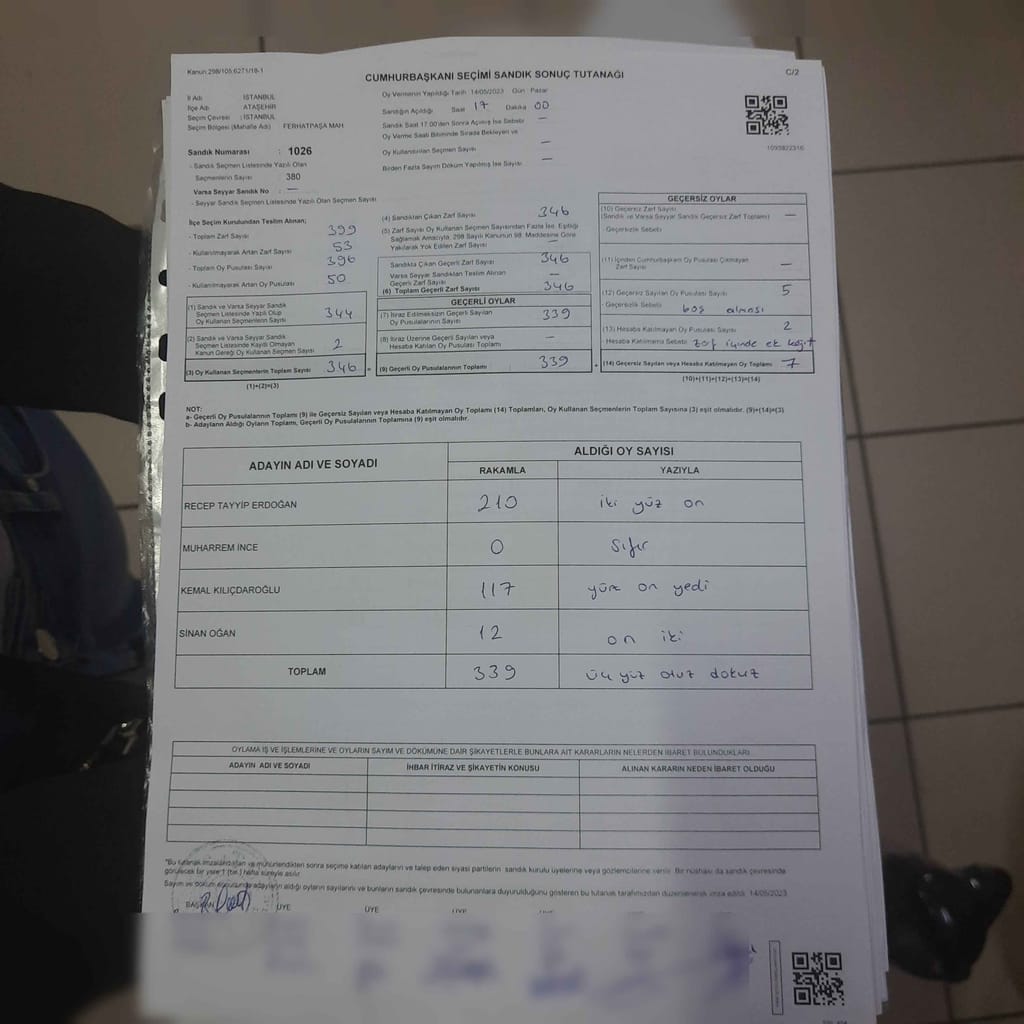 Kanun:298/105,6271/18-1
C/2
CUMHURBAŞKANI SEÇİMİ SANDIK SONUÇ TUTANAĞI
İl Adı : İSTANBUL
İlçe Adı : ATAŞEHİR
Seçim Çevresi : İSTANBUL
Seçim Bölgesi (Mahalle Adı) : FERHATPAŞA MAH
Sandık Numarası : 1026
- Sandık Seçmen Listesinde Yazılı Olan
Seçmenlerin Sayısı : 380
Varsa Seyyar Sandık No : —
- Seyyar Sandık Listesinde Yazılı Olan Seçmen Sayısı
Oy Vermenin Yapıldığı Tarih :14/05/2023 Gün : Pazar
Sandığın Açıldığı Saat 17 Dakika 00
Sandık Saat 17.00'den Sonra Açılmış İse Sebebi —
Oy Verme Saati Bitiminde Sırada Bekleyen ve
Oy Kullandırılan Seçmen Sayısı —
Birden Fazla Sayım Döküm Yapılmış İse Sayısı —
1093822316
İlçe Seçim Kurulundan Teslim Alınan;
- Toplam Zarf Sayısı 399
- Kullanılmayarak Artan Zarf Sayısı 53
- Toplam Oy Pusulası Sayısı 396
- Kullanılmayarak Artan Oy Pusulası 50
(1) Sandık ve Varsa Seyyar Sandık
Seçmen Listesinde Yazılı Olup
Oy Kullanan Seçmenlerin Sayısı 344
(2) Sandık ve Varsa Seyyar Sandık
Seçmen Listesinde Kaydı Olmayan
Kanun Gereği Oy Kullanan Seçmen Sayısı 2
(3) Oy Kullanan Seçmenlerin Toplam Sayısı 346
(1)+(2)=(3)
(4) Sandıktan Çıkan Zarf Sayısı 346
(5) Zarf Sayısı Oy Kullanan Seçmen Sayısından Fazla İse, Eşitliği
Sağlamak Amacıyla, 298 Sayılı Kanunun 98. Maddesine Göre
Yakılarak Yok Edilen Zarf Sayısı —
Sandıkta Çıkan Geçerli Zarf Sayısı 346
Varsa Seyyar Sandıktan Teslim Alınan
Geçerli Zarf Sayısı —
(6) Toplam Geçerli Zarf Sayısı 346
GEÇERLİ OYLAR
(7) İtiraz Edilmeksizin Geçerli Sayılan
Oy Pusulalarının Sayısı 339
(8) İtiraz Üzerine Geçerli Sayılan veya
Hesaba Katılan Oy Pusulası Toplamı —
(9) Geçerli Oy Pusulalarının Toplamı 339
GEÇERSİZ OYLAR
(10) Geçersiz Zarf Sayısı
(Sandık ve Varsa Seyyar Sandık Geçersiz Zarf Toplamı) —
- Geçersizlik Sebebi
(11) İçinden Cumhurbaşkanı Oy Pusulası Çıkmayan
Zarf Sayısı —
(12) Geçersiz Sayılan Oy Pusulası Sayısı 5
- Geçersizlik Sebebi boş olması
(13) Hesaba Katılmayan Oy Pusulası Sayısı 2
- Hesaba Katılmama Sebebi zarf içinde ek kağıt
(14) Geçersiz Sayılan veya Hesaba Katılmayan Oy Toplamı 7
(10)+(11)+(12)+(13)=(14)
NOT:
a- Geçerli Oy Pusulalarının Toplamı (9) ile Geçersiz Sayılan veya Hesaba Katılmayan Oy Toplamı (14) Toplamları, Oy Kullanan Seçmenlerin Toplam Sayısına (3) eşit olmalıdır. (9)+(14)=(3)
b- Adayların Aldığı Oyların Toplamı, Geçerli Oy Pusulalarının Toplamına (9) eşit olmalıdır.
ADAYIN ADI VE SOYADI ALDIĞI OY SAYISI
RAKAMLA YAZIYLA
RECEP TAYYİP ERDOĞAN 210 iki yüz on
MUHARREM İNCE 0 Sıfır
KEMAL KILIÇDAROĞLU 117 yüz on yedi
SİNAN OĞAN 12 on iki
TOPLAM 339 üç yüz otuz dokuz
OYLAMA İŞ VE İŞLEMLERİNE VE OYLARIN SAYIM VE DÖKÜMÜNE DAİR ŞİKAYETLERLE BUNLARA AİT KARARLARIN NELERDEN İBARET BULUNDUKLARI
ADAYIN ADI VE SOYADI İHBAR İTİRAZ VE ŞİKAYETİN KONUSU ALINAN KARARIN NEDEN İBARET OLDUĞU
*Bu tutanak imzalandıktan ve mühürlendikten sonra seçime katılan adayların ve talep eden siyasi partilerin sandık kurulu üyelerine veya gözlemcilerine verilir. Bir nüshası da sandık çevresinde
görülecek bir yere 1 (bir) hafta süreyle asılır.
Sayım ve döküm sonucunda adayların aldığı oyların sayılarını ve bunların sandık çevresinde bulunanlara duyurulduğunu gösteren bu tutanak tarafımızdan düzenlenerek imza edildi. 14/05/2023
BAŞKAN ÜYE ÜYE ÜYE